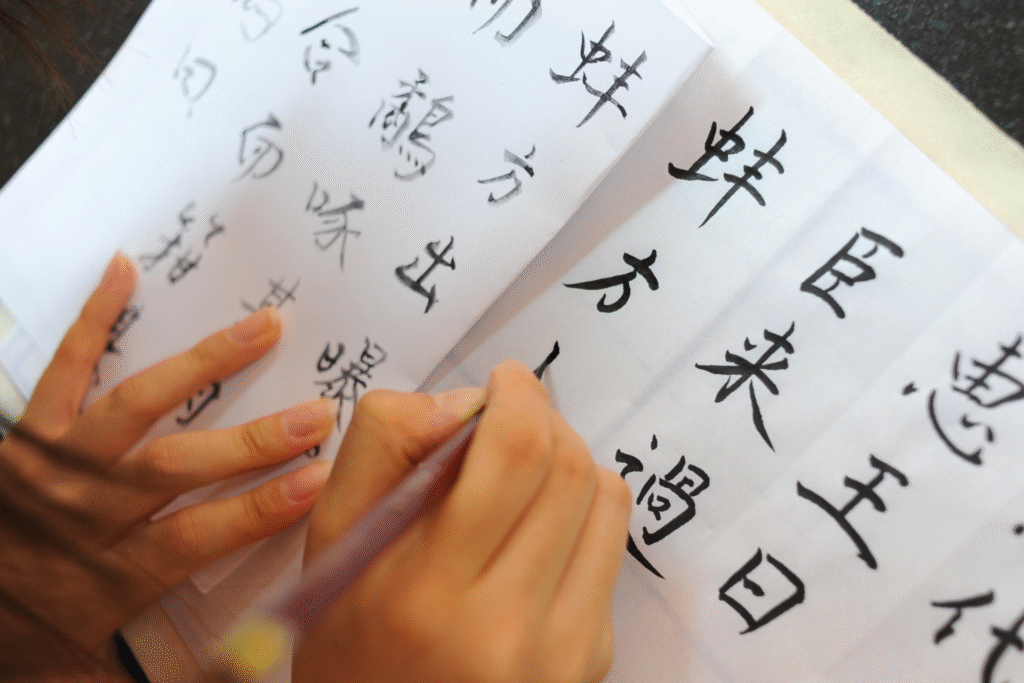 代
惠王曰
臣来過
蚌方
蚌方出曝
鷸啄其肉
合而箝